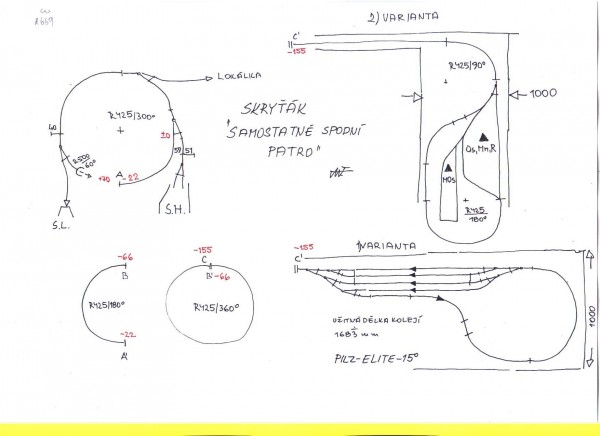 2) VARIANTA
C'
-155
R425/90°
1000
LOKÁLKA
R425/300°
SKRYŤÁK
"SAMOSTATNÉ SPODNÍ
PATRO"
R500
60°
+70
A
-22
S.L.
S.H.
51
R425
180°
-66
B
R425/180°
-22
A'
-155
C
B'
-66
R425/360°
-155
C'
1)VARIANTA
UŽITNÁ DÉLKA KOLEJÍ
1683 mm
PILZ-ELITE-15°
1000